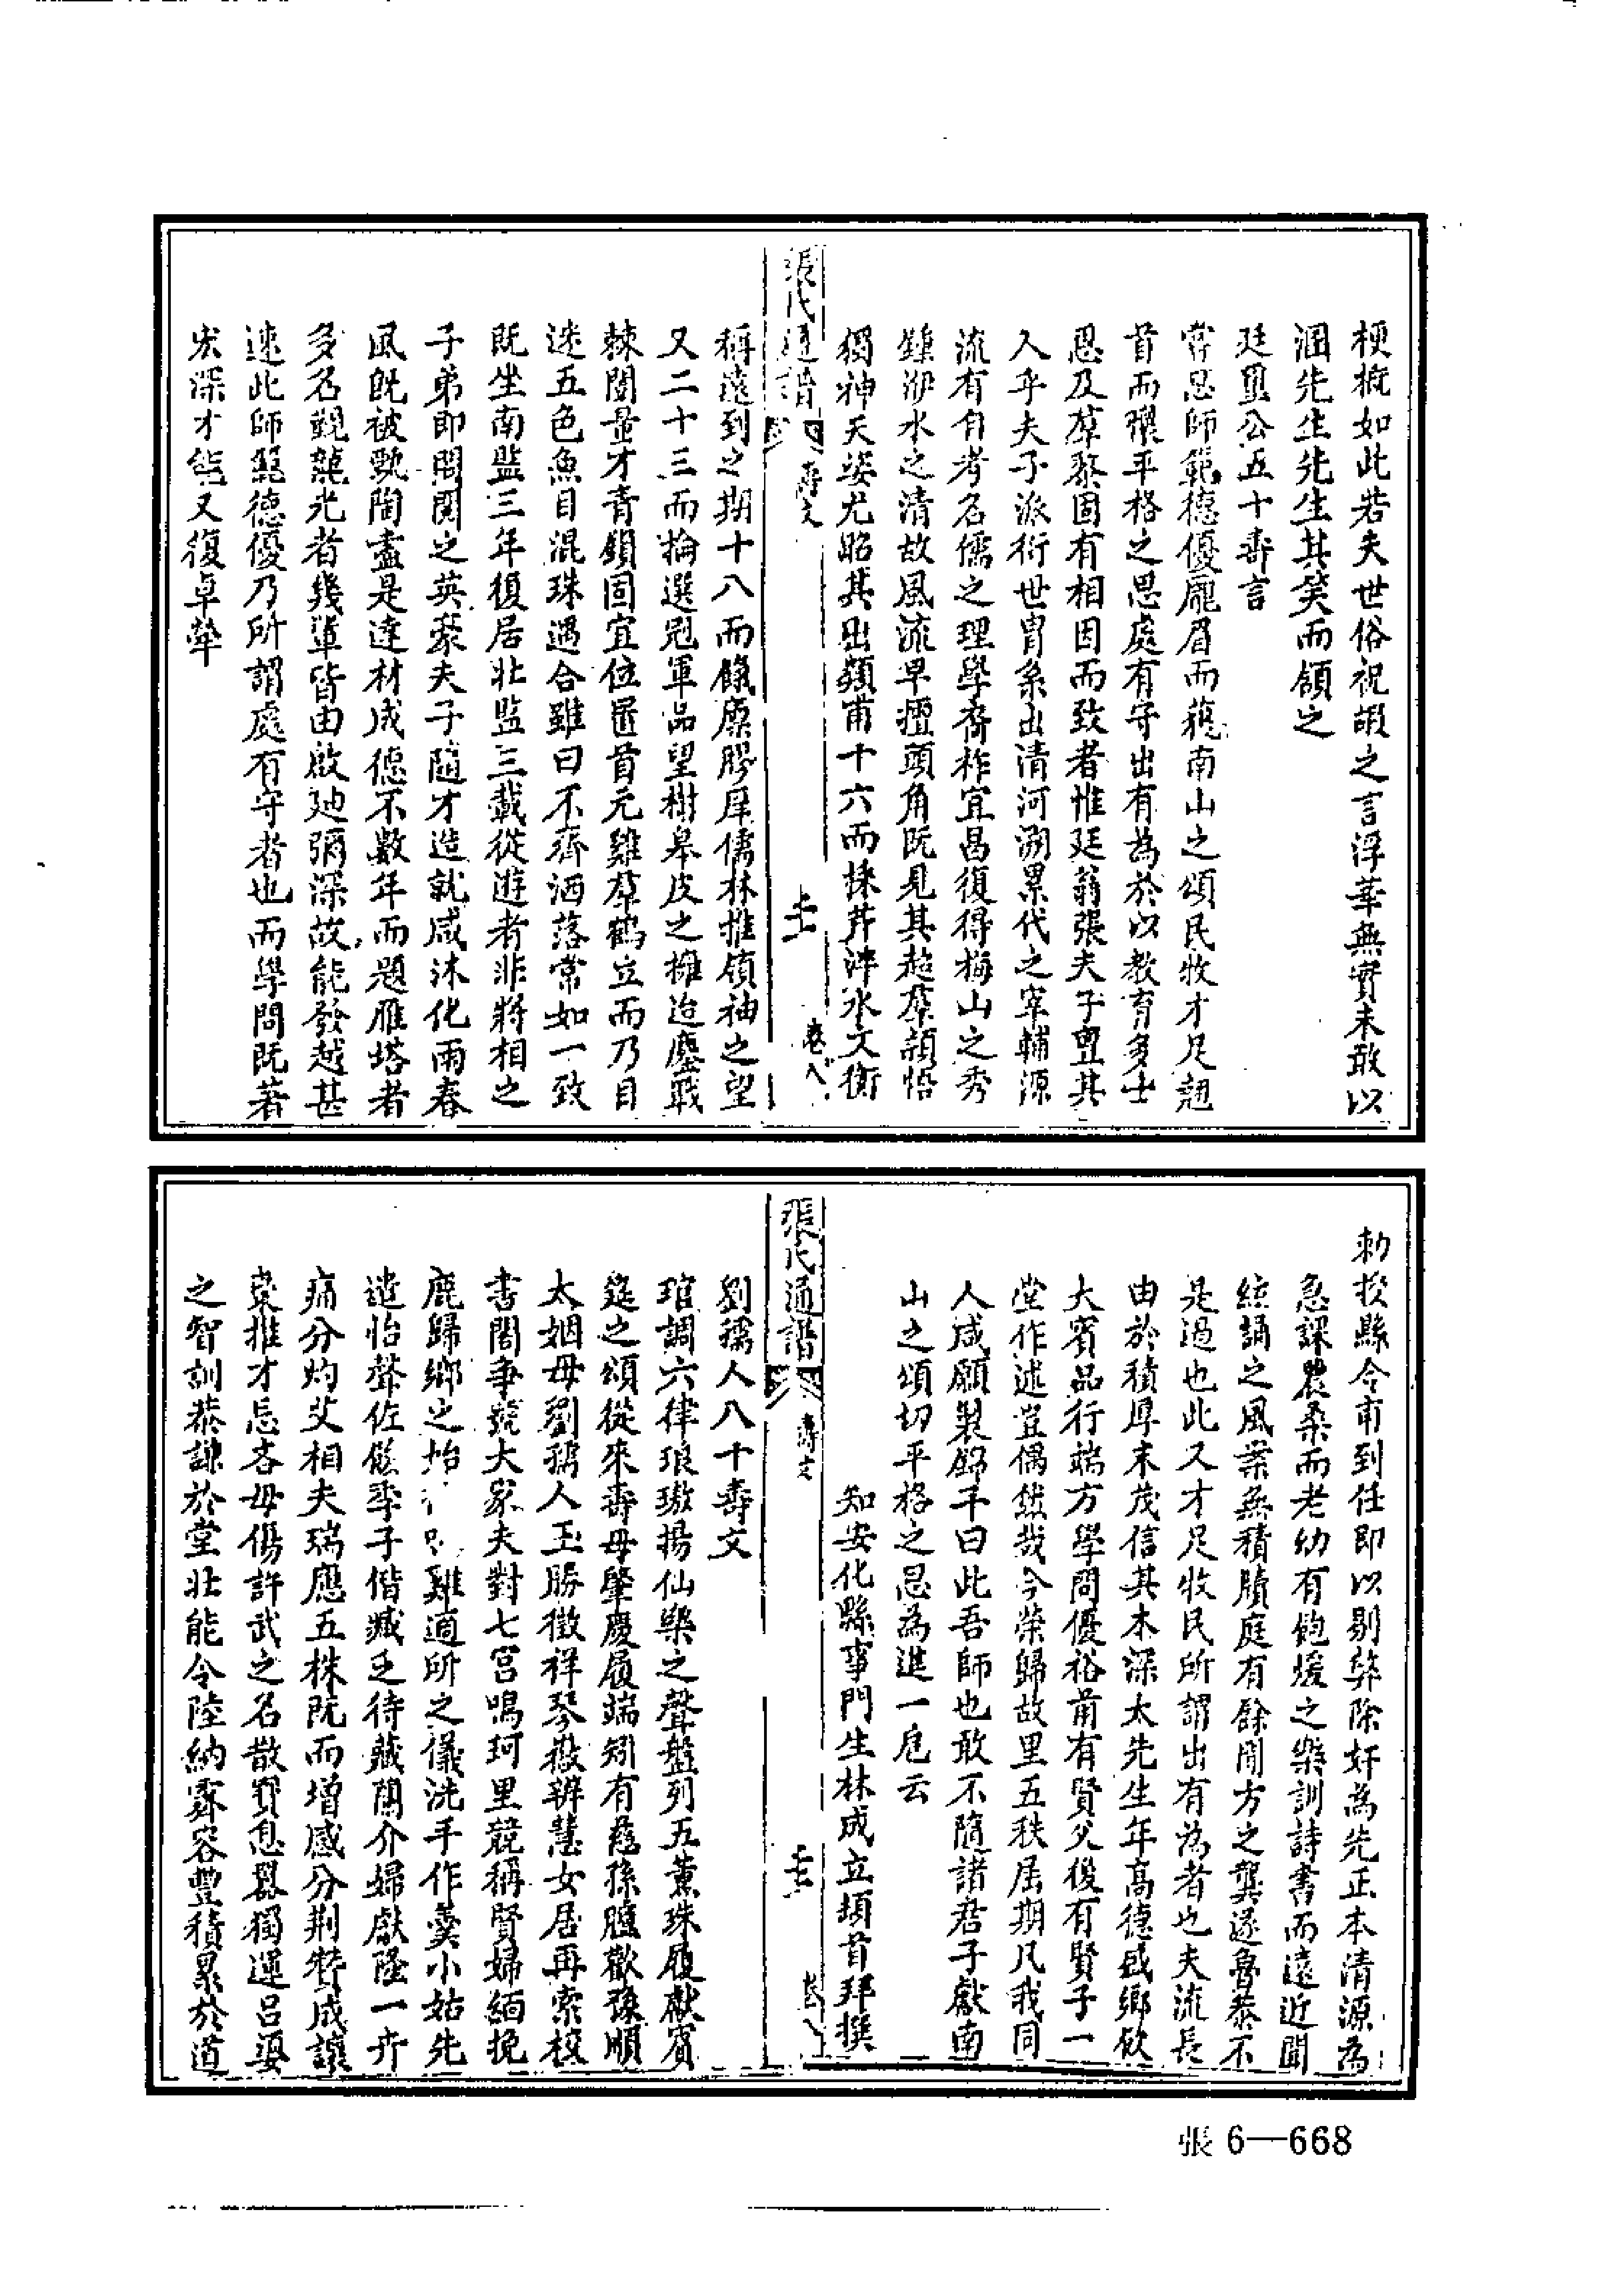 梗概如此若夫世俗祝嘏之言浮華無實未敢以
溷先生先生其笑而頷之
廷璽公五十壽言
嘗思師範德優龐眉而獲南山之頌民牧才足翹
首而釀平格之思處有守出有為於以教育多士
恩及羣黎固有相因而致者惟廷翁張夫子豈其
人乎夫子派衍世胄系出清河溯累代之宰輔源
流有自考名儒之理學裔祚宜昌復得梅山之秀
鍾洢水之清故風流早擅頭角既見其超羣穎悟
獨神天姿尤昭其出類甫十六而採芹泮水文衡
張氏通譜 壽文 卷八
稱遠到之期十八而餼廩膠庠儒林推領袖之望
又二十三而掄選冠軍品望樹皋皮之擁迨鏖戰
棘闈量才青鎖固宜位置首元雞羣鶴立而乃目
迷五色魚目混珠遇合雖曰不齊洒落常如一致
既坐南監三年復居北監三載從遊者非將相之
子弟即閥閱之英豪夫子隨才造就咸沐化雨春
風既被甄陶盡是達材成德不數年而題雁塔者
多名覲龍光者幾輩皆由啟廸彌深故能發越甚
速此師範德優乃所謂處有守者也而學問既著
宏深才能又復卓犖
勅授縣令甫到任即以剔弊除奸為先正本清源為
急課農桑而老幼有飽煖之樂訓詩書而遠近聞
絃誦之風案無積牘庭有餘閒方之龔遂魯恭不
是過也此又才足牧民所謂出有為者也夫流長
由於積厚末茂信其本深太先生年高德盛鄉飲
大賓品行端方學問優裕前有賢父後有賢子一
堂作述豈偶然哉今榮歸故里五秩屆期凡我同
人咸願製錦予曰此吾師也敢不隨諸君子獻南
山之頌切平格之思為進一卮云
知安化縣事門生林成立頓首拜撰
張氏通譜 壽文 卷八
劉孺人八十壽文
琯調六律琅璈揚仙樂之聲盤列五薰珠履獻賓
筵之頌從來壽母肇慶履端矧有慈孫臚歡豫順
太姻母劉孺人玉勝徵祥琴徽辨慧女居再索校
書閣爭號大家夫對七宮鳴珂里競稱賢婦緬挽
鹿歸鄉之始 雞適所之儀洗手作羹小姑先
遣怡聲佐餕季子偕臧乏待藏蘭介婦獻隆一卉
痛分灼艾相夫瑞應五株既而增感分荊贊成讓
棗推才忌吝毋傷許武之名散貲息嚚獨運呂嬃
之智訓恭謙於堂壯能令陸納霽容豐積累於道
張6—668